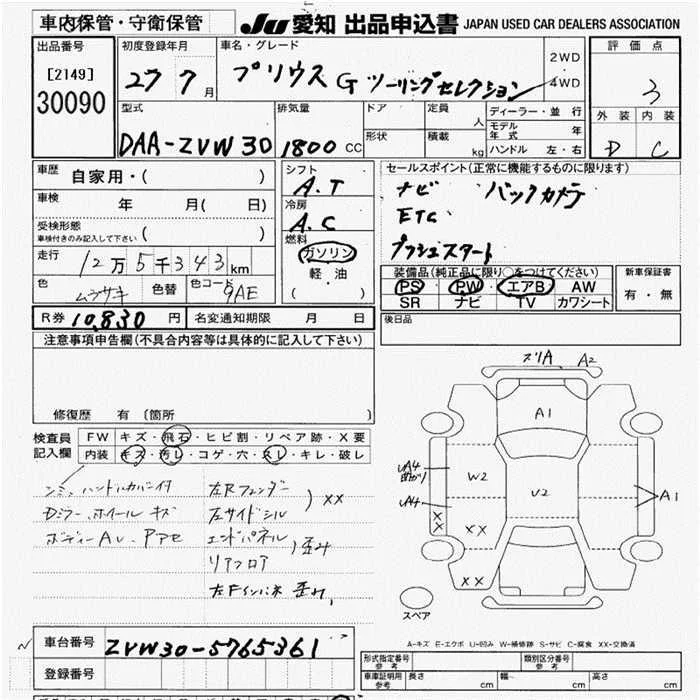 車内保管・守衛保管
JU 愛知 出品申込書 JAPAN USED CAR DEALERS ASSOCIATION
出品番号 初度登録年月 車名・グレード 2WD 評価点
[2149] 27 7月 プリウス G ツーリングセレクション ・ 3
30090 4WD
型式 排気量 ドア 定員 人 ディーラー・並行 外装 内装
DAA-ZVW30 1800 CC 形状 積載 kg モデル年式 年 D C
ハンドル 左・右
車歴 自家用・( ) シフト A.T セールスポイント(正常に機能するものに限ります)
車検 年 月( 日) 冷房 A.C ナビ バックカメラ
受検形態 ( ) ETC
車検付きのみ記入して下さい 燃料 ガソリン プッシュスタート
走行 12万5千343km 軽油
色 ムラサキ 色替 色コード 9AE ( )
装備品(純正品に限り○をつけてください) 新車保証書
PS PW エアB AW 有・無
SR ナビ TV カワシート
R券 10,830円 名変通知期限 月 日 後日品
注意事項申告欄(不具合内容等は具体的に記入して下さい)
修復歴 有〔箇所 〕
検査員記入欄 FW キズ・飛石・ヒビ割・リペア跡・X要
内装 キズ・汚レ・コゲ・穴・スレ・キレ・破レ
ハンドルカバー付 左Rフェンダー
Dミラー ホイール キズ 左サイドシル ) XX
エンドパネル
リアフロア ) 歪み
左Fインパネ 歪み
ズリA A2
A1
UA4 曲がり W2 U2 A1
UA4
XX XX
XX
スペア
A-キズ E-エクボ U-凹み W-補修跡 S-サビ C-腐食 XX-交換済
車台番号 ZVW30-5765361
登録番号
形式指定番号 参考 類別区分番号 参考
車庫証明用 参考 長さ cm 幅 cm 高さ cm